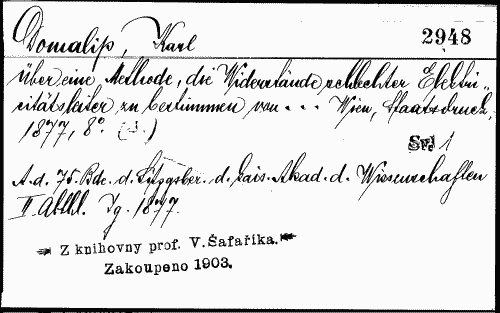 Domalip, Karl
2948
über eine Methode, die Widerstände schlechter Elektri„
citätsleiter zu bestimmen von . . . Wien, Staatsdruck,
1877, 8°.
Sv. 1
A. d. 75. Bde. d. Sitzgsber. d. kais. Akad. d. Wissenschaften
II. Abthl. Jg. 1877.
Z knihovny prof. V. Šafaříka.
Zakoupeno 1903.